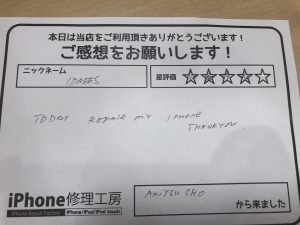 本日は当店をご利用頂きありがとうございます!
ご感想をお願いします!
ニックネーム
IDREES
星評価
TODAY REPAIR MY IPHONE
THANKYOU.
iPhone修理工房
iPhone Repair Factory
iPhone/iPad/iPod touch
AKITSU CHO
から来ました